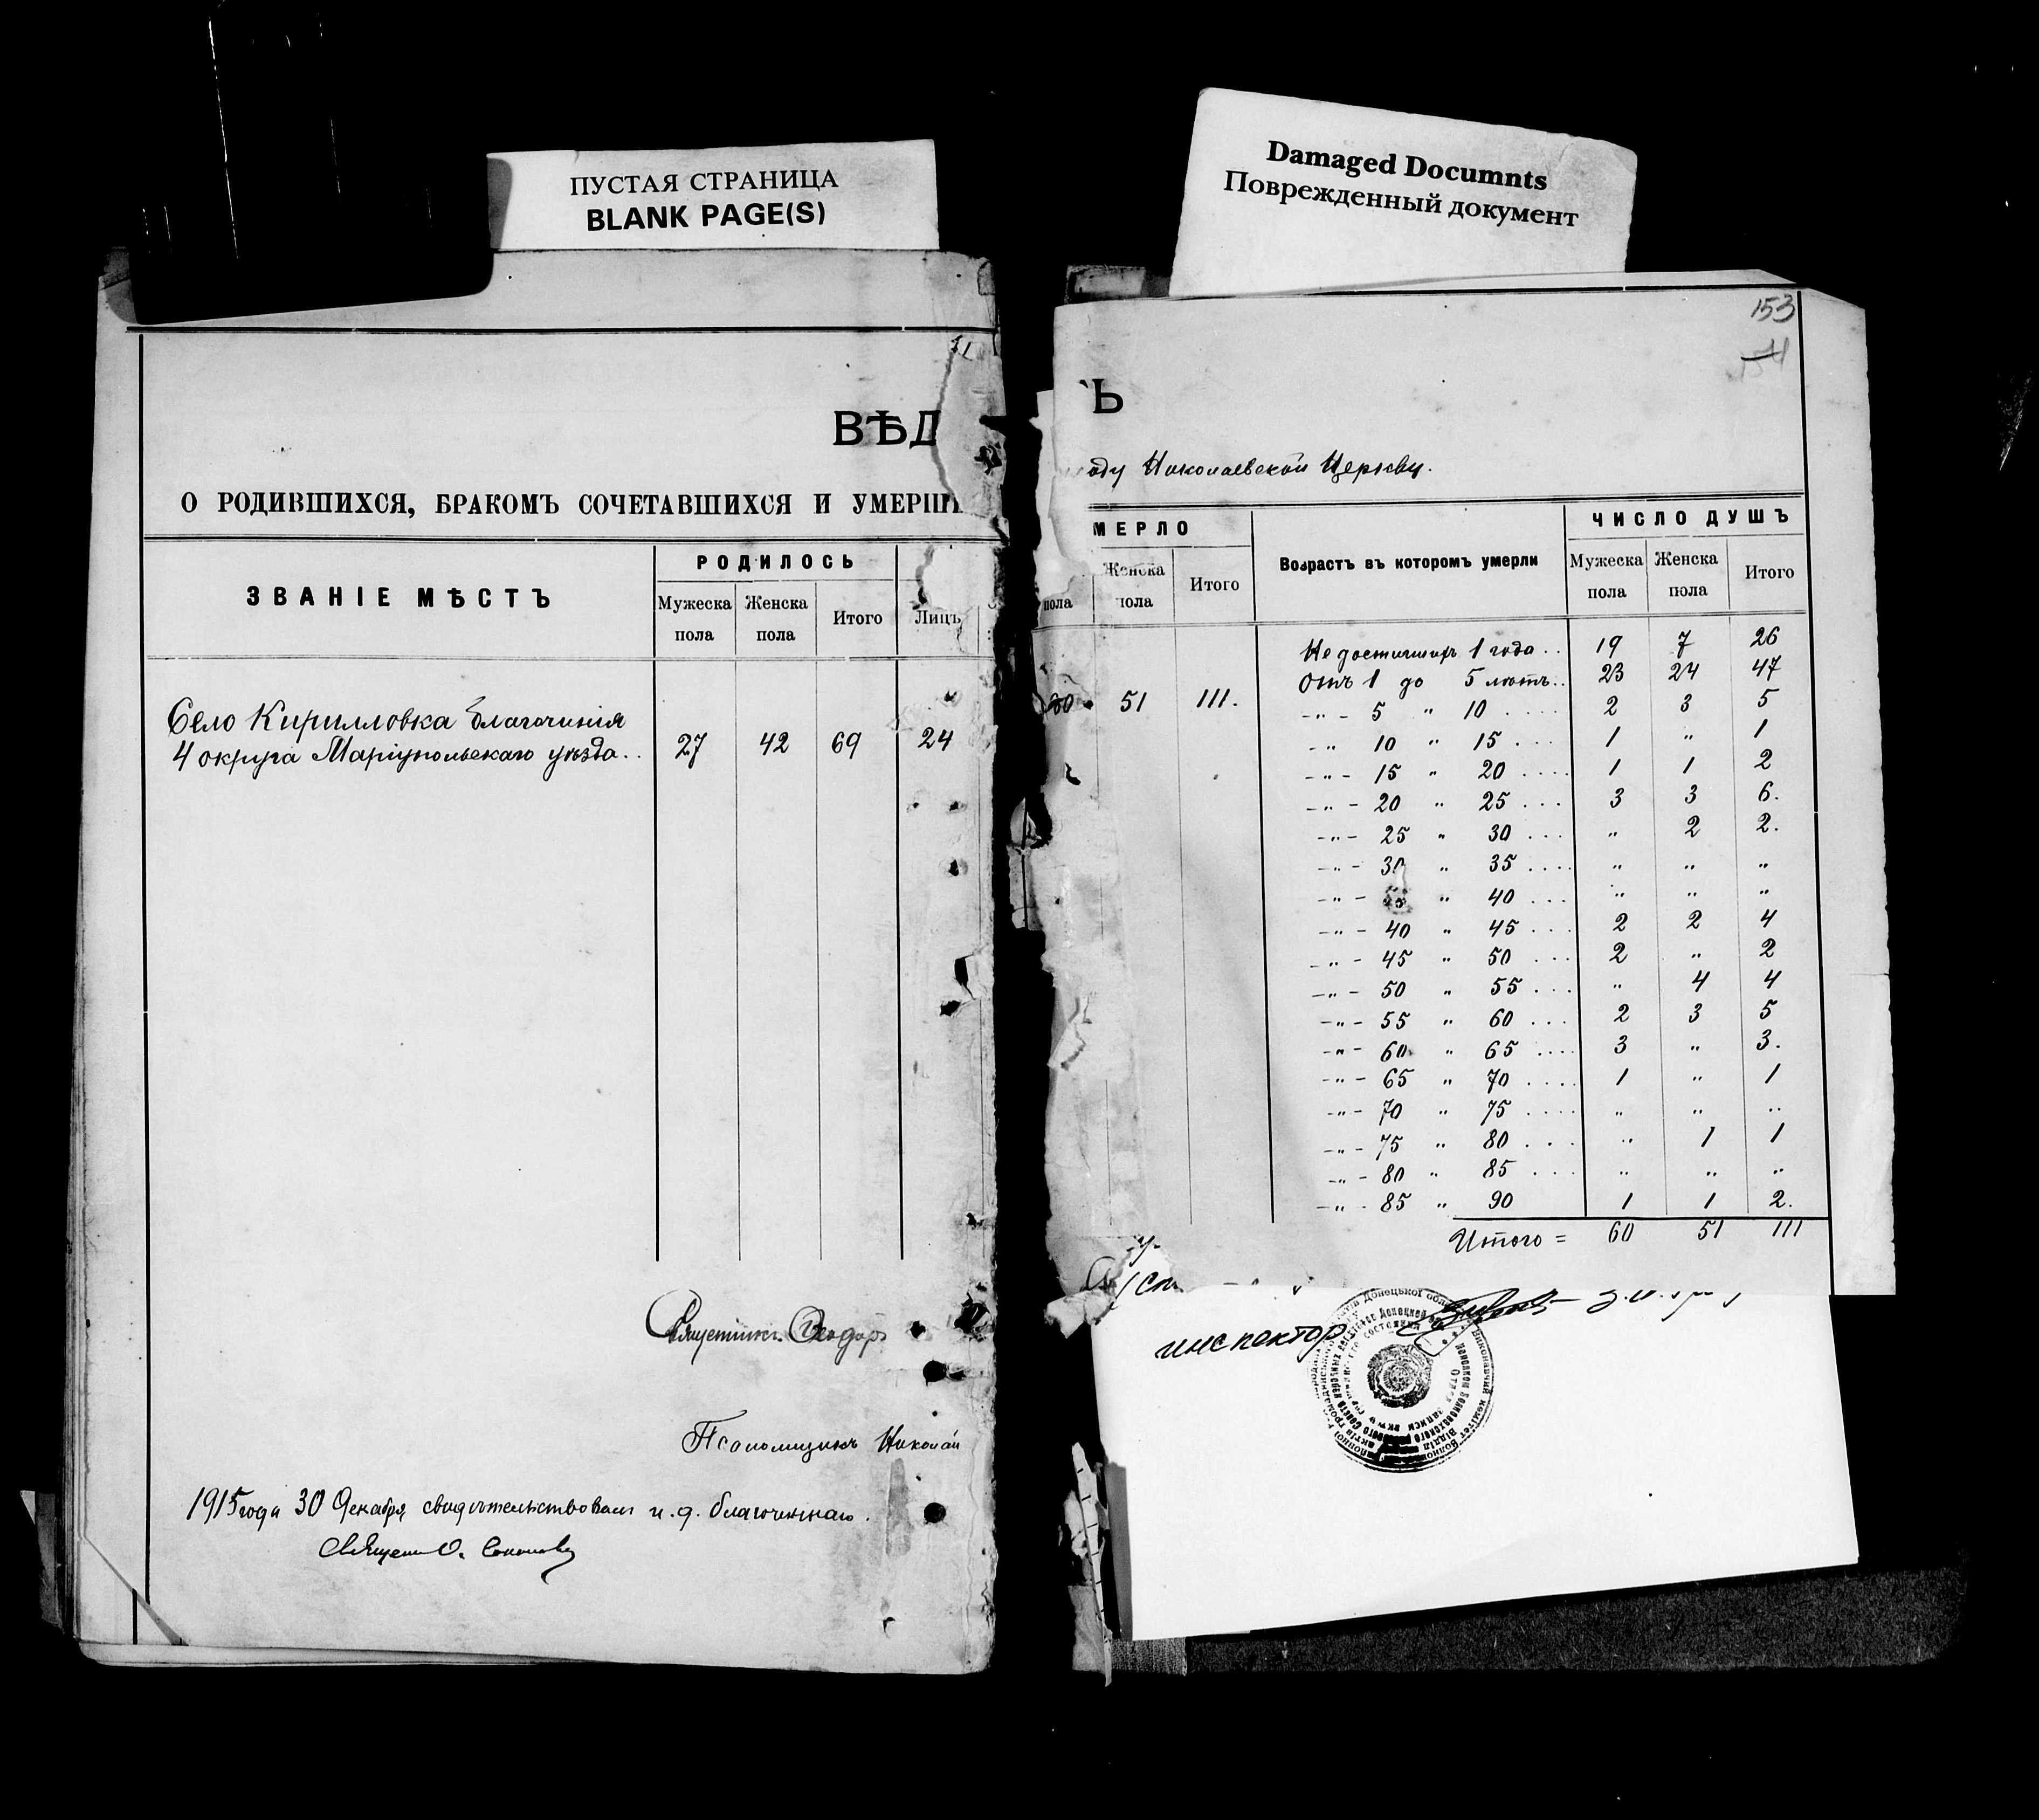 ПУСТАЯ СТРАНИЦА
BLANK PAGE(S)
ВѢД
О РОДИВШИХСЯ, БРАКОМЪ СОЧЕТАВШИХСЯ И УМЕРШИ
ЗВАНІЕ МѢСТЪ
РОДИЛОСЬ
Мужеска пола
Женска пола
Итого
Лицъ
Село Кирилловка благочинія
4 округа Маріупольскаго уѣзда.. 27 42 69 24
Священникъ Ѳеодоръ
Псаломщикъ Николай
1915 года 30 Декабря свидѣтельствовалъ и. д. благочиннаго.
Damaged Documnts
Поврежденный документ
153
Ь
оду Николаевской Церкви.
МЕРЛО
пола
Женска пола
Итого
Возрастъ въ которомъ умерли
ЧИСЛО ДУШЪ
Мужеска пола
Женска пола
Итого
60 51 111.
Не достигшихъ 1 года.. 19 7 26
Отъ 1 до 5 лѣтъ.. 23 24 47
-„- 5 „ 10 .... 2 3 5
-„- 10 „ 15 ... 1 „ 1
-„- 15 „ 20 .... 1 1 2
-„- 20 „ 25 ... 3 3 6.
-„- 25 „ 30 ... „ 2 2.
-„- 30 „ 35 .... „ „ „
-„- 35 „ 40 ... „ „ „
-„- 40 „ 45 ... 2 2 4
-„- 45 „ 50 ... 2 „ 2
-„- 50 „ 55 ... „ 4 4
-„- 55 „ 60 ... 2 3 5
-„- 60 „ 65 .... 3 „ 3.
-„- 65 „ 70 .... 1 „ 1
-„- 70 „ 75 .... „ „ „
-„- 75 „ 80 ... „ 1 1
-„- 80 „ 85 ... „ „ „
-„- 85 „ 90 1 1 2.
Итого = 60 51 111
инспектор